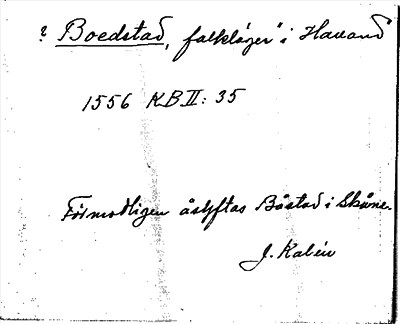 ? Boedstad, falkläger "i Halland"
1556 KB II: 35
Förmodligen åsyftas Båstad i Skåne.
J. Kalén